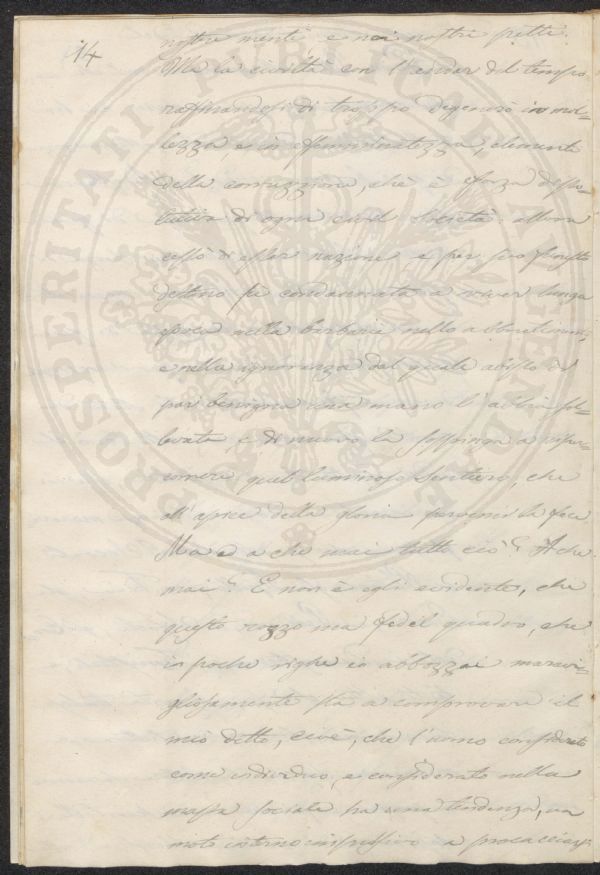 14
nostre menti, e nei nostri petti.
Ma la civiltà con l'andar del tempo
raffinandosi di troppo degenerò in mol=
lezza, e in effemminatezza, elemente
della corruzzione, che è forza distru=
tiva di ogni civil società: allora
cessò di esser nazione e per suo funesto
destino fu condannata a viver lunga
epoca nella barbarie nello abbrutimen,
e nella ignoranza dal quale abisso di
pari benigna una mano l'abbia sol=
levata, e di nuovo la sospinga a riper=
correre quel luminoso sentiero, che
all'apice della gloria pervenir la fece
Ma e a che mai tutto ciò? A che
mai? E non è egli evidente, che
questo rozzo ma fedel quadro, che
in poche righe io abbozzai maravi=
gliosamente sta a comprovare il
mio detto, cioè, che l'uomo considerato
come individuo, e considerato nella
massa sociale ha una tendenza, un
moto interno impulsivo a procacciar
PROSPERITATI PUBLICAE AUGENDAE